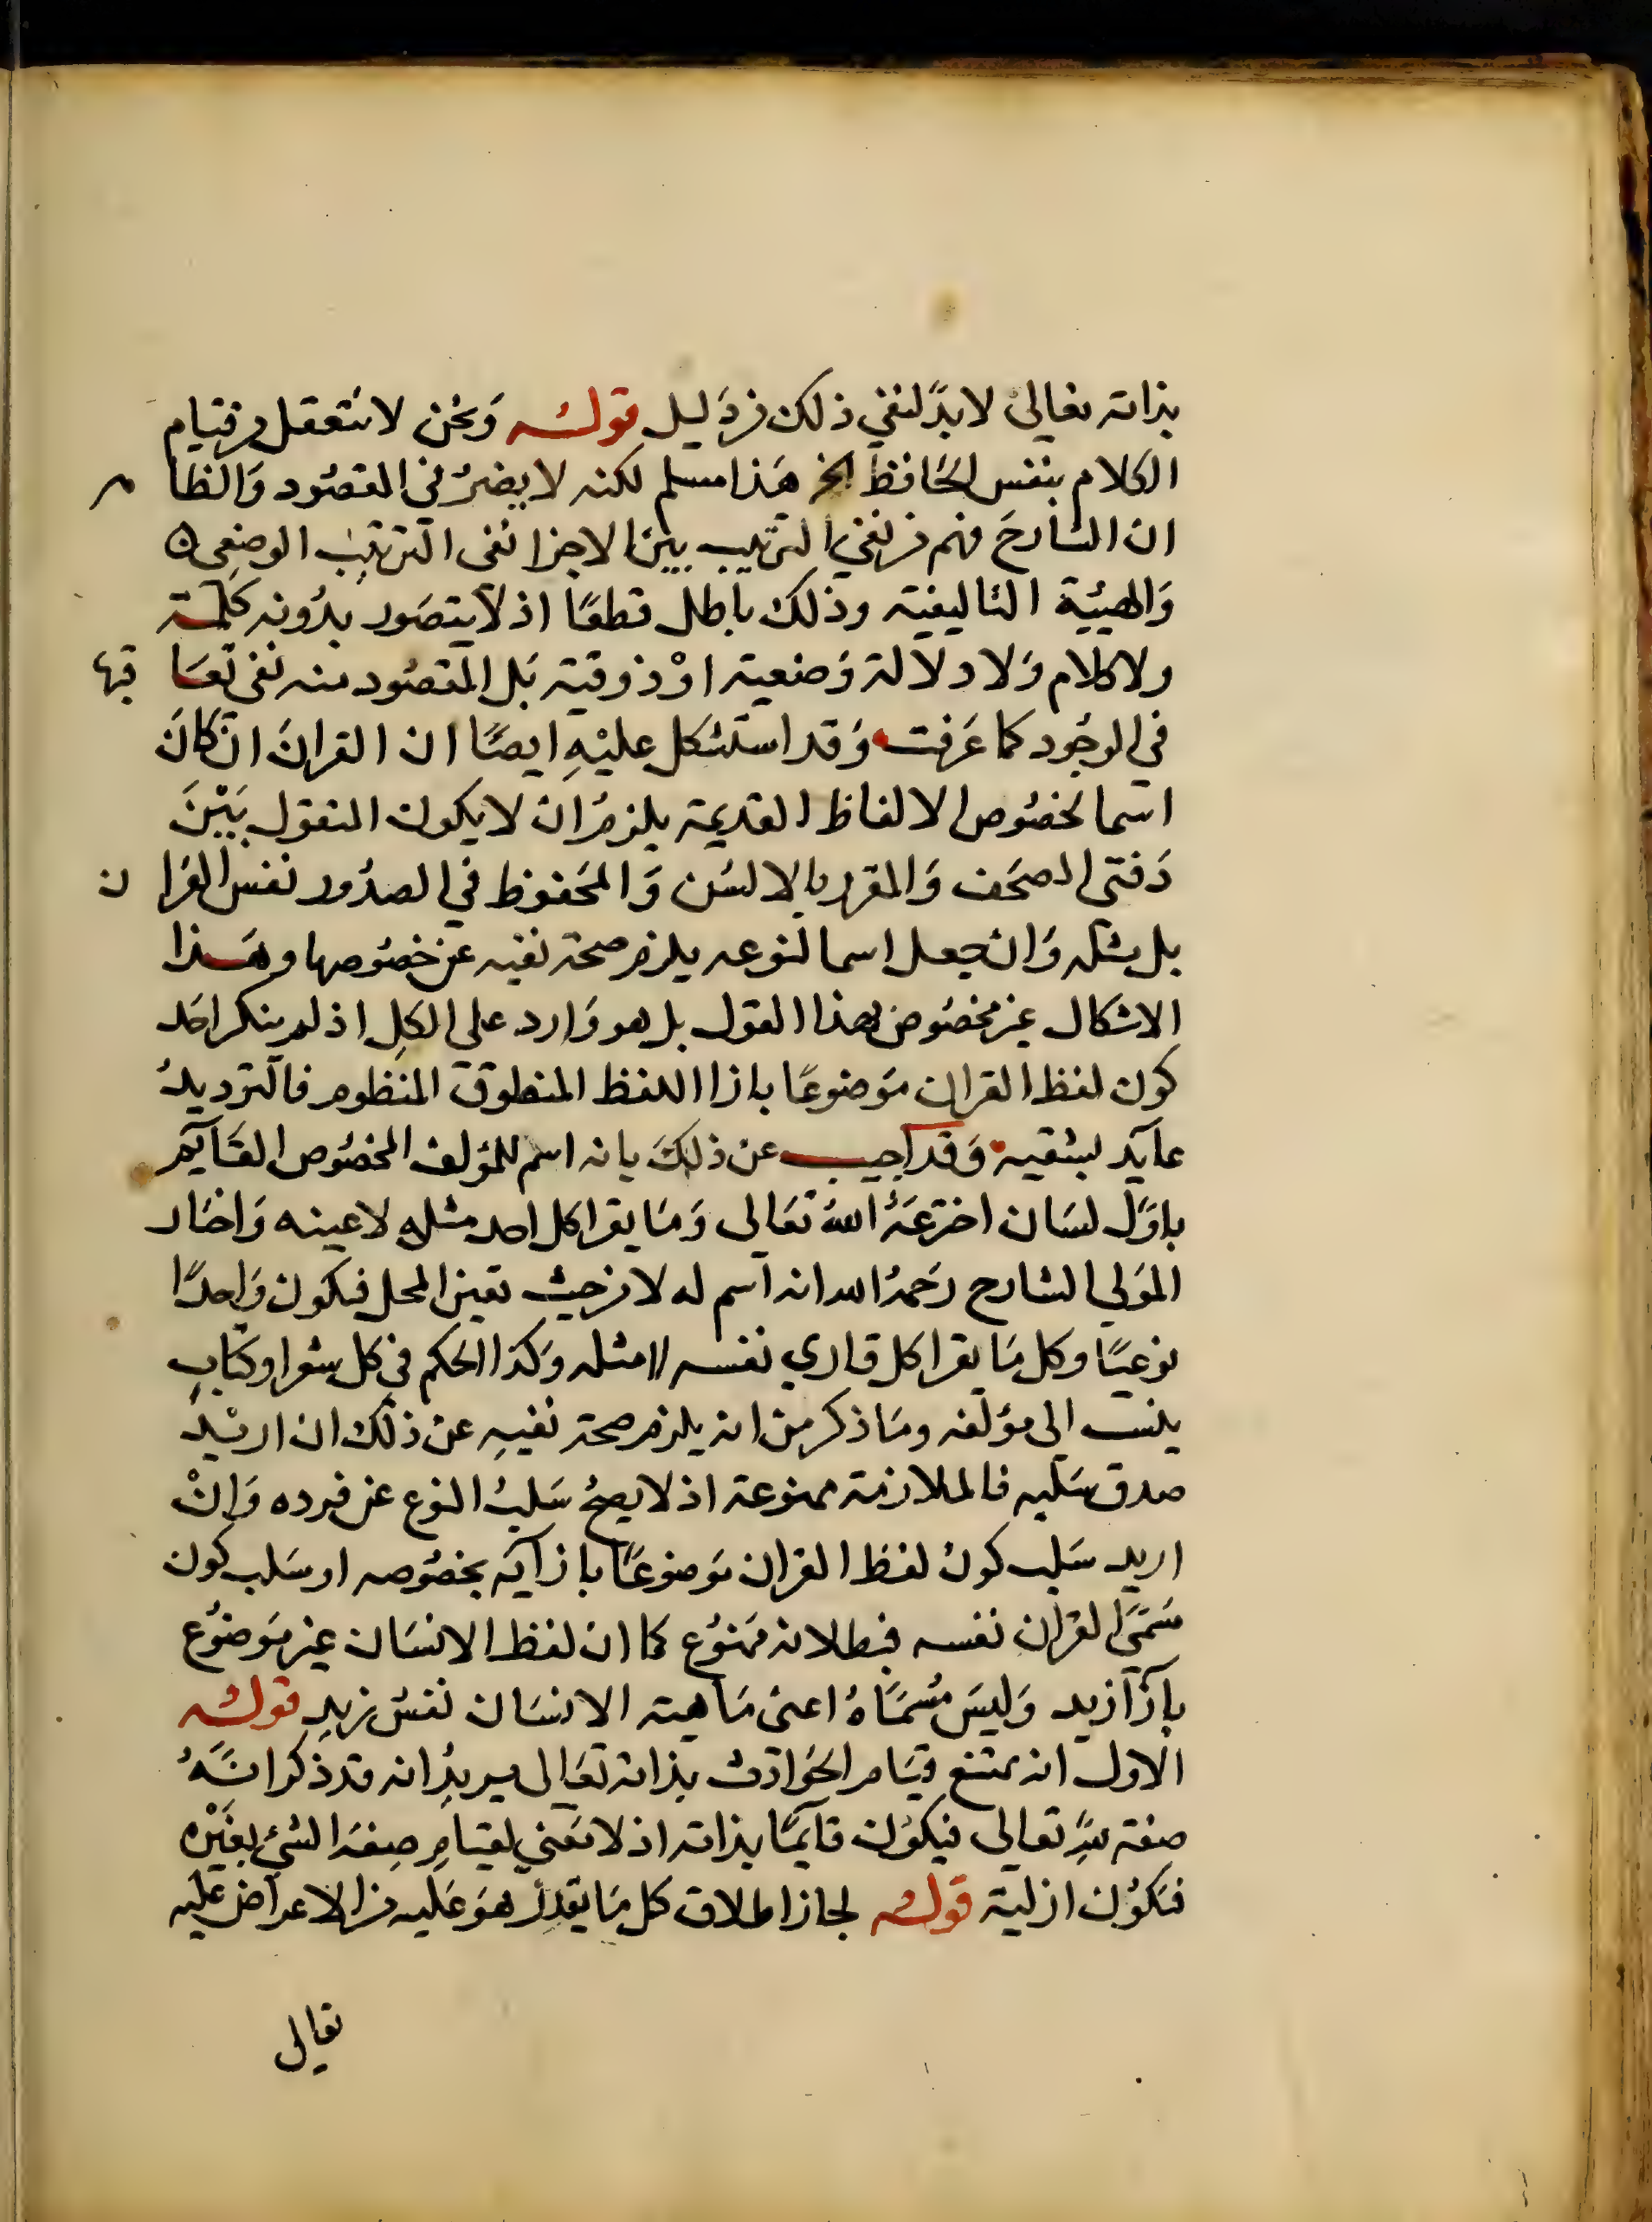 بذاته تعالى لا بدّ لنفي ذلك من دَليل قوله وَنحن لا نتعقل من قيام
الكلام بنفس الحَافظ الخ هَذا مسلم لكنه لا يضرّ في المقصُود وَالظا م
ان الشارحَ فهم من نفي الترتيب بين الاجزا نفى الترتيب الوضعي
وَالهيئية التاليفية وذلك باطل قطعًا اذ لا يتصَور بدُونه كلمة
ولا كلام وَلا دلالة وَضعية اوْ ذوقية بَل المقصُود منه نفى تعَا قبها
في الوجُود كما عَرفت وَقد استشكل عليْهِ ايضًا ان القرانَ ان كانَ
اسما لخصُوص الالفاظ القديمة يلزمُ ان لا يكون المنقول بَيْنَ
دَفتى المصحَف وَالمقرر بالالسُن وَالمحَفوظ في الصدُور نفس القرا ن
بل مثله وَان جعل اسما لنوعه يلزم صحة نفيه عن خصُوصها وهَذا
الاشكال غير مخصُوص بهذا القول بل هو وَارد على الكل اذ لم ينكر احَد
كون لفظ القران مَوضوعًا بازا اللفظ المنطوق المنظوم فالترديدُ
عآيد بشقيه وَقد اجيب عن ذلكَ بانه اسم للمؤلف المخصُوص القَآيم
باوّل لسَان اخترعَهُ اللهُ تعَالى وَمَا يقرا كل احد مثله لا عينه وَاختَار
المَولي الشارح رَحمهُ الله انه اسم له لا من حيث تعين المحل فيكون وَاحدًا
نوعيًا وكل مَا يقرا كل قاري نفسه لا مثله وَكذا الحكم في كل شعر او كتابٍ
ينسب الى مؤلفه ومَا ذكر من انه يلزم صحة نفيهِ عن ذلك ان اريْد
صدق سَلبه فالملازمة ممنوعة اذ لا يصحُ سَلبُ النوع عن فرده وَانْ
اريد سَلب كون لفظ القران مَوضوعًا بازآيه بخصُوصه او سَلب كون
مَسَمّى القران نفسه فبطلانه مَمنوُع كما ان لفظ الانسَان غير مَوضوُع
بازآ زيد وَليسَ مُسمَّاهُ اعنى مَاهية الانسَان نفسُ زيدٍ قوله
الاول انه يمتنع قيَام الحَوادث بذاته تعَالى يريدُ انه قد ذكر انَّهُ
صفة للهِ تعالى فيكوُن قايمًا بذاته اذ لا مَعني لقيَامِ صِفَة الشي بغَيْره
فتكوُن ازلية قوله لجاز اطلاق كل مَا يقدر هوَ عَليه من الاعراض عليه
تعالى